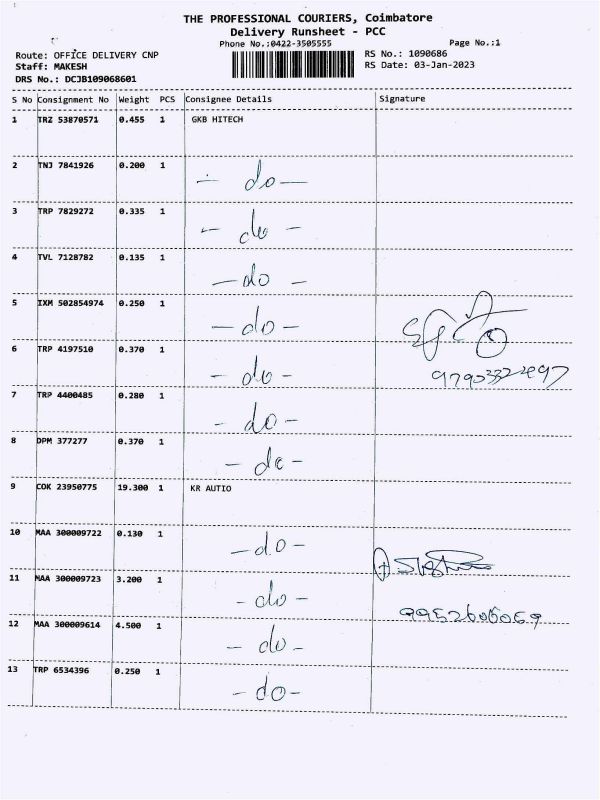 THE PROFESSIONAL COURIERS, Coimbatore
Delivery Runsheet - PCC
Phone No.:0422-3505555 Page No.:1
Route: OFFICE DELIVERY CNP RS No.: 1090686
Staff: MAKESH RS Date: 03-Jan-2023
DRS No.: DCJB109068601
S No Consignment No Weight PCS Consignee Details Signature
1 TRZ 53870571 0.455 1 GKB HITECH
2 TNJ 7841926 0.200 1 - do -
3 TRP 7829272 0.335 1 - do -
4 TVL 7128782 0.135 1 - do -
5 IXM 502854974 0.250 1 - do -
6 TRP 4197510 0.370 1 - do -
7 TRP 4400485 0.280 1 - do -
8 DPM 377277 0.370 1 - do -
9 COK 23950775 19.300 1 KR AUTIO
10 MAA 300009722 0.130 1 - do -
11 MAA 300009723 3.200 1 - do -
9952605069
12 MAA 300009614 4.500 1 - do -
13 TRP 6534396 0.250 1 - do -